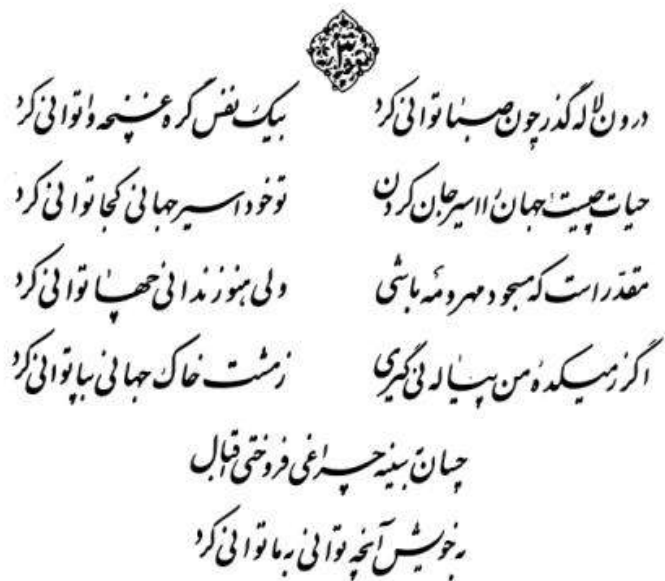 ۳
درون لاله گذر چون صبا توانی کرد بیک نفس گره غنچه وا توانی کرد
حیات چیست جهان را اسیر جان کردن تو خود اسیر جهانی کجا توانی کرد
مقدّر است که مسجود مهر و مه باشی ولی هنوز ندانی چها توانی کرد
اگر ز میکدهٔ من پیاله‌ئی گیری ز مشت خاک جهانی بپا توانی کرد
چسان بسینه چراغی فروختی اقبال
به خویش آنچه توانی به ما توانی کرد